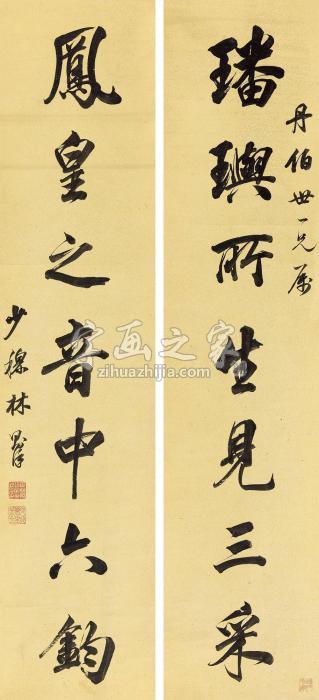 丹伯世一兄属
璠璵所生見三采
鳳皇之音中六鈞
少穆林則徐
字画之家
zihuazhijia.com